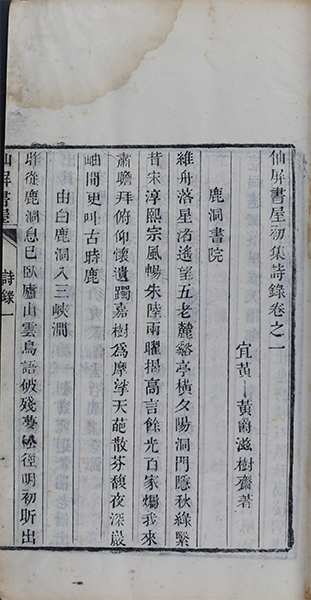 仙屏書屋初集詩錄卷之一
宜黃黃爵滋樹齋著
鹿洞書院
維舟落星渚遙望五老麓谿亭橫夕陽洞門隱秋綠緊
昔宋淳熙宗風暢朱陸兩曜揭高言餘光百家燭我來
肅瞻拜俯仰懷遺躅嘉樹為摩挲天葩散芬馥夜深巖
岫間更叫古時鹿
由白鹿洞入三峽澗
昨從鹿洞息已臥廬山雲鳥語破殘夢松徑明初昕出
仙屏書屋
詩錄一